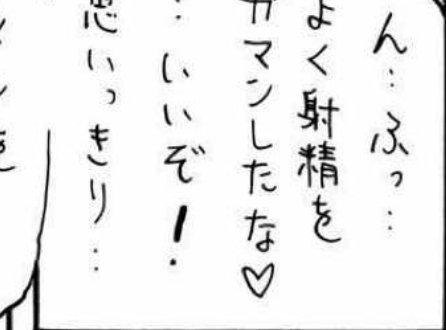 ん…ふっ…
よく射精を
ガマンしたな♡
…いいぞ！
思いっきり…